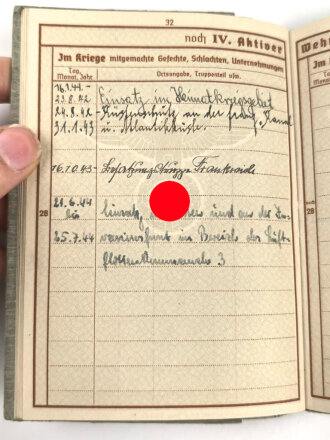 32
noch IV. Aktiver
Im Kriege mitgemachte Gefechte, Schlachten, Unternehmungen
Tag, Monat, Jahr
Ortsangabe, Truppenteil usw.
23.8.42 Einsatz im Heimatkriegsgebiet
24.8.42 - Küstenschutz an der franz. Kanal
31.1.43 u. Atlantikküste.
16.10.43- Besatzungstruppe Frankreich
21.6.44 Einsatz und an der In-
28
bis
25.7.44 vasionsfront im Bereich des Luft-
flotten 3
Weh